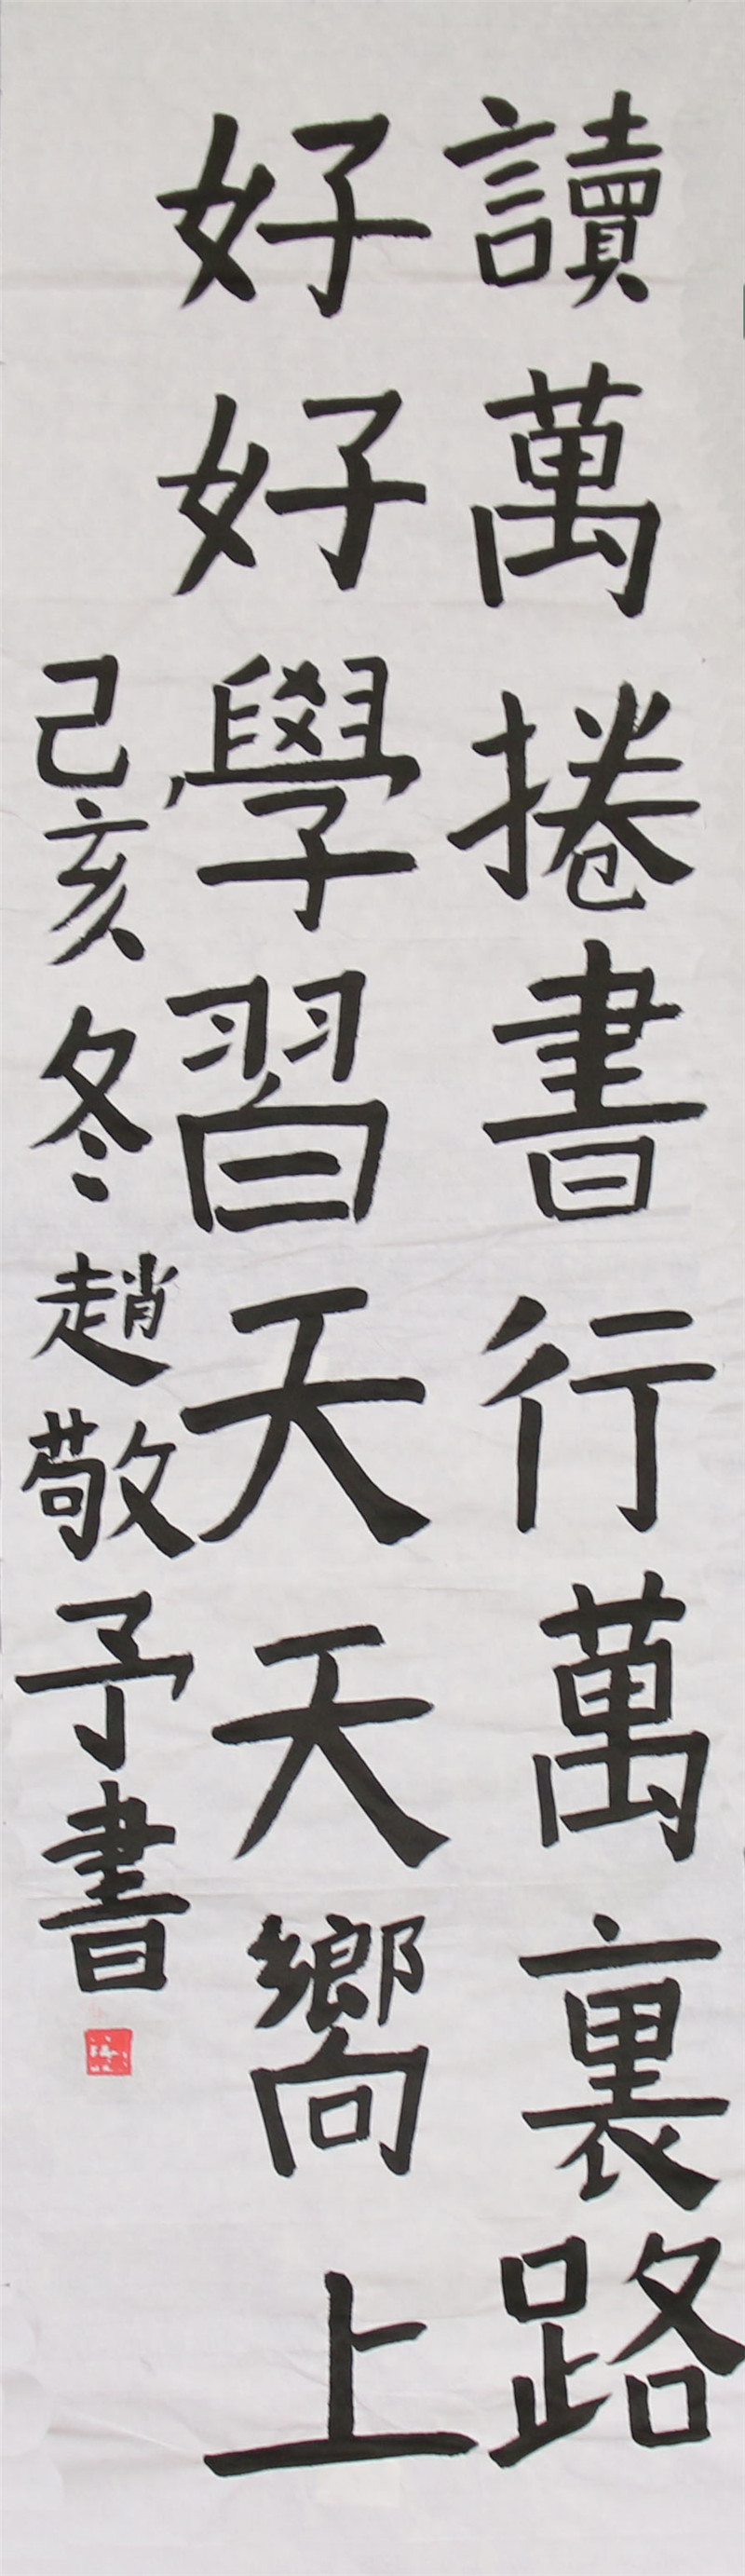 讀萬捲書行萬裏路
好好學習天天嚮上
己亥冬趙敬予書